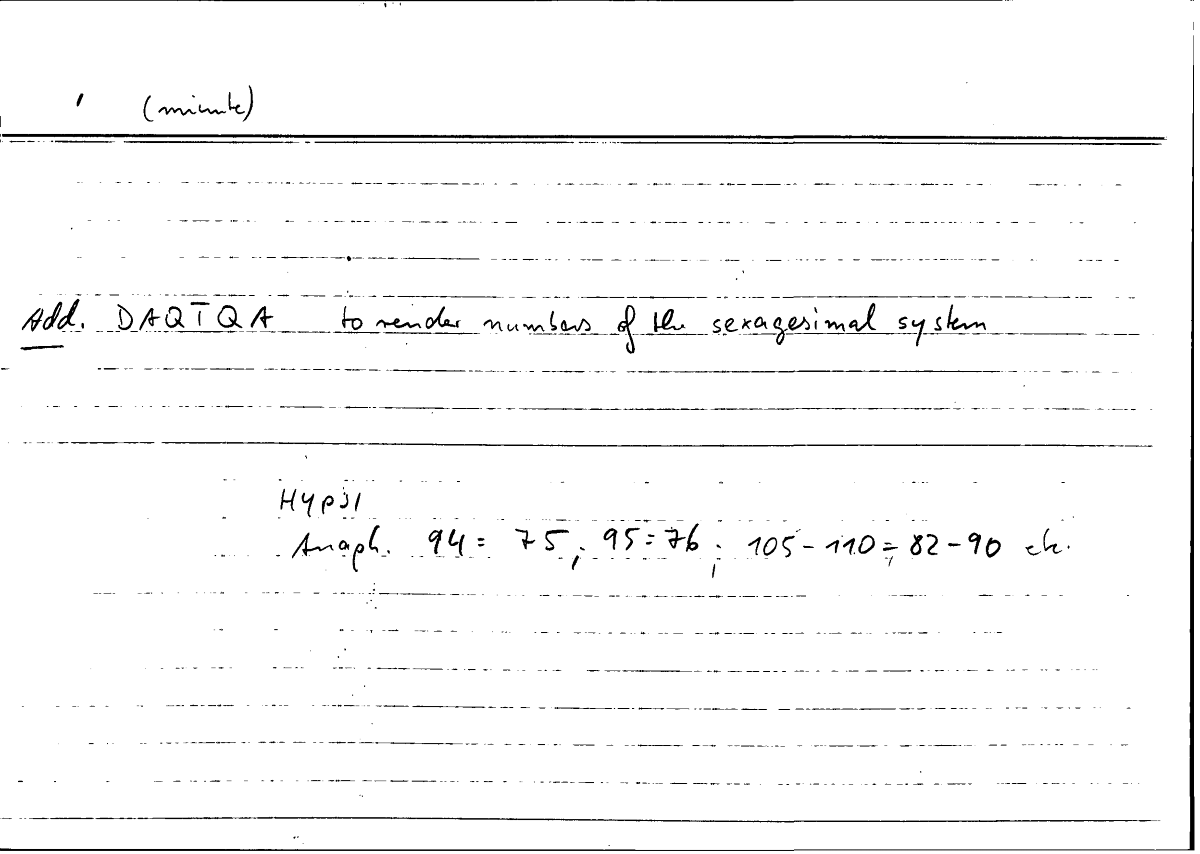 ′ (minute)
Add. DAQĪQA to render numbers of the sexagesimal system
Hypsl
Anaph. 94 = 75; 95 = 76; 105-110 = 82-90 etc.